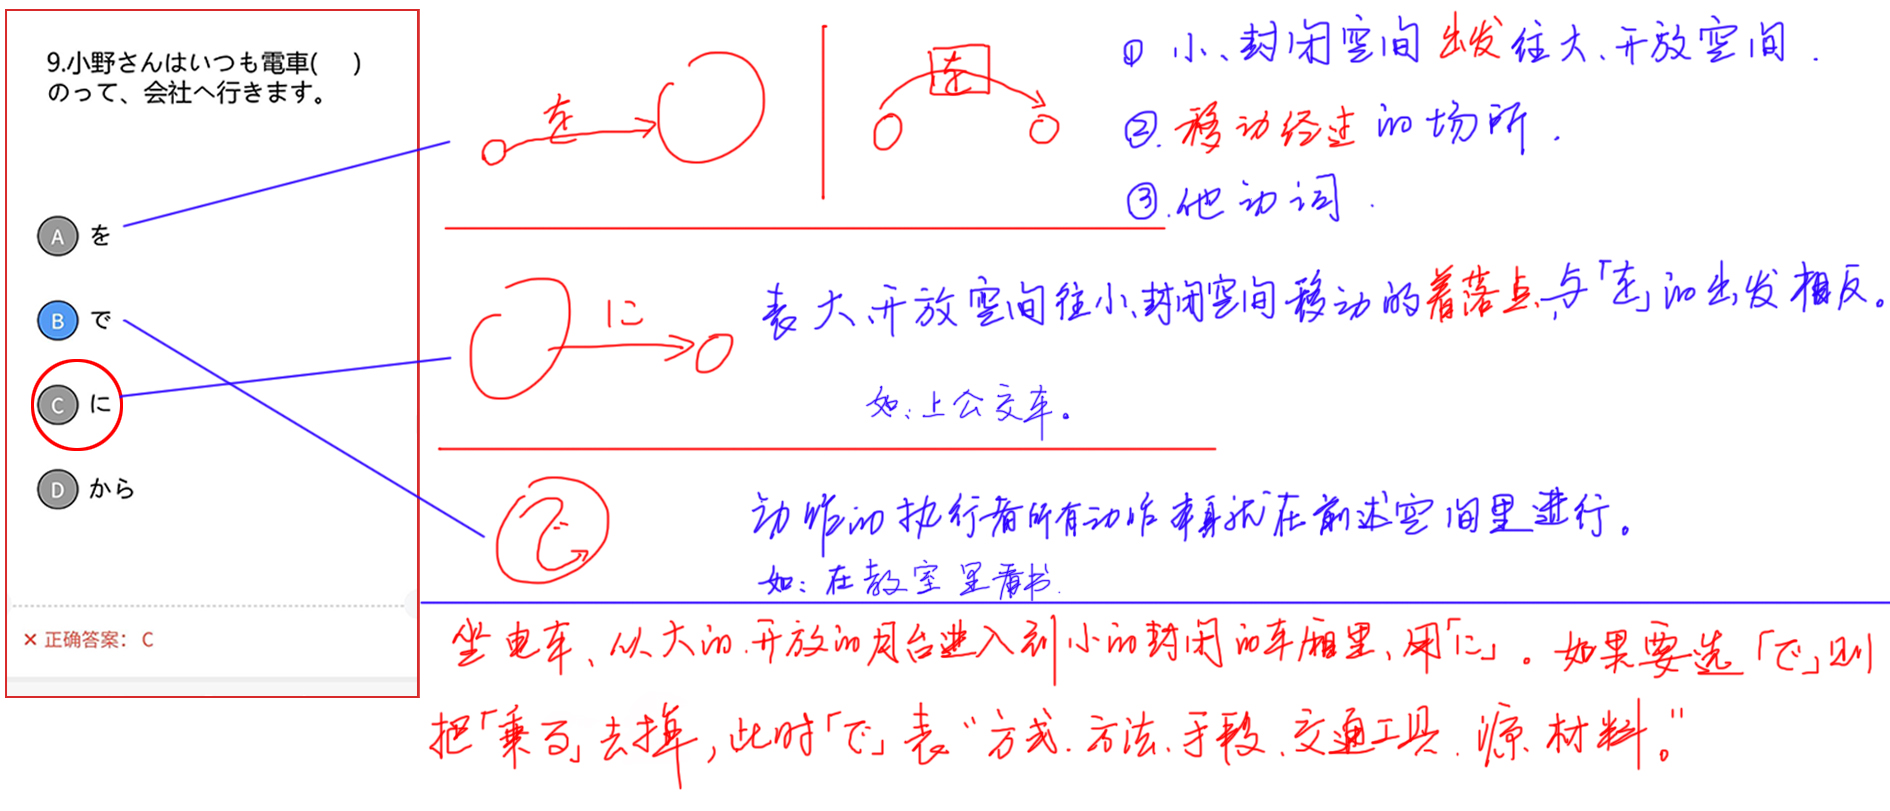 9.小野さんはいつも電車(　)
のって、会社へ行きます。
A を
B で
C に
D から
× 正确答案： C
を
を
① 小、封闭空间出发往大、开放空间.
②. 移动经过的场所.
③. 他动词.
に
表大、开放空间往小、封闭空间移动的着落点，与「を」的出发相反。
如：上公交车。
で
动作的执行者所有动作本身就在前述空间里进行。
如：在教室里看书.
坐电车、从大的、开放的月台进入到小的封闭的车厢里、用「に」。如果要选「で」则
把「乗る」去掉，此时「で」表“方式、方法、手段、交通工具、源、材料。”